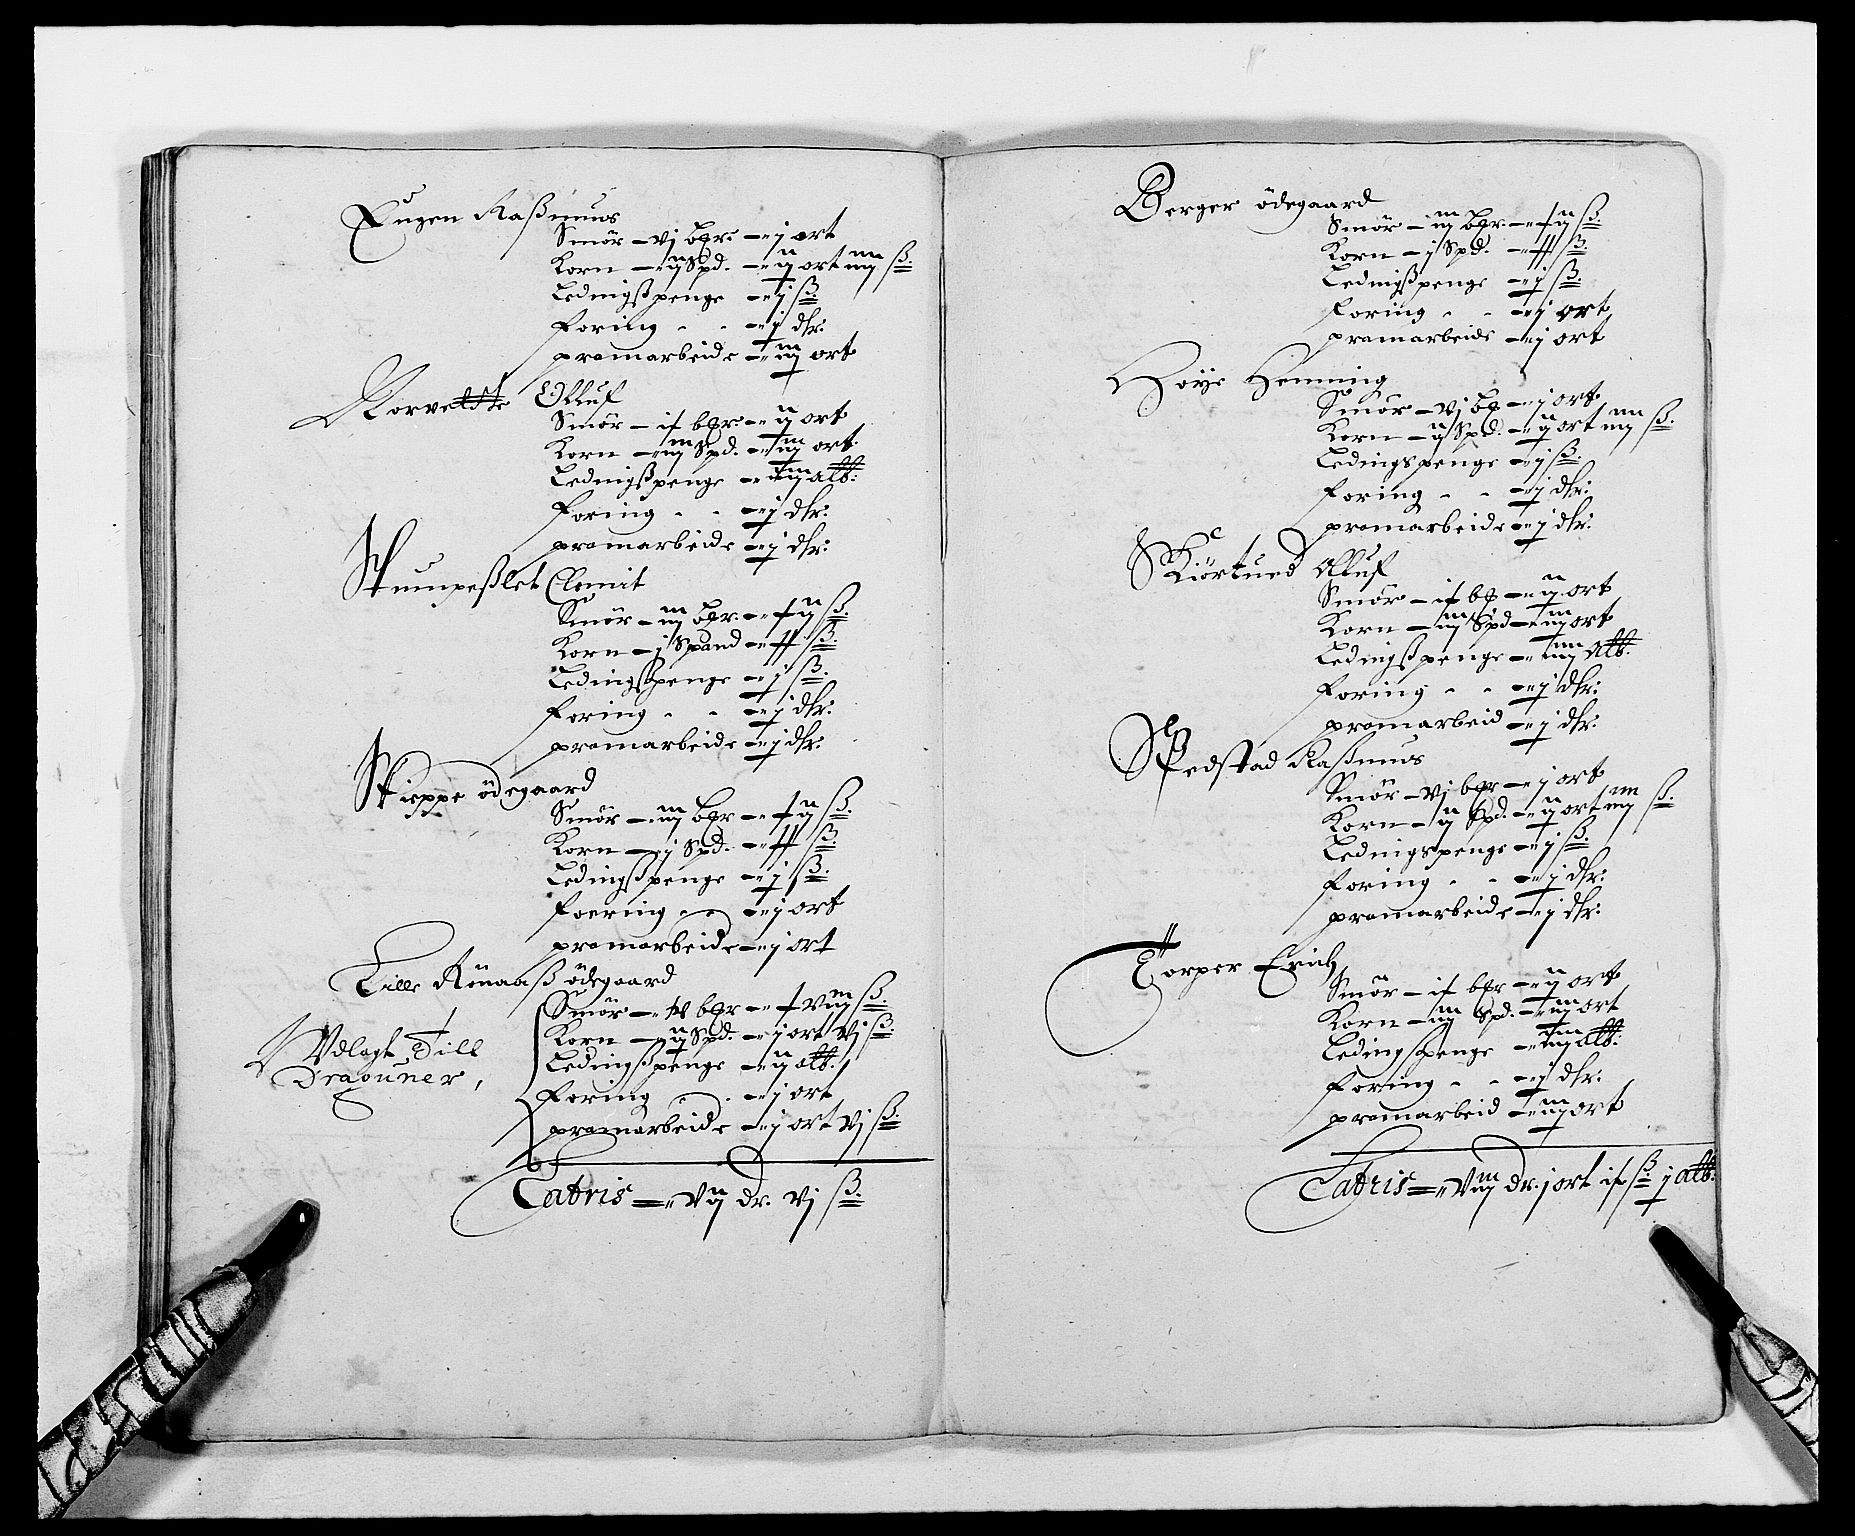 Eugen Raßmuus
Smör – vj bpr: – j ort
Korn – ij Spd. – ij ort iiij ß.
Ledingßpenge – j ß.
Foring – j dlr:
pramarbeide – iij ort
Korvette Olluf
Smör – ix bpr: – ij ort
Korn – iij Spd. – iij ort.
Ledingßpenge – iiij alb:
Foring – j dlr:
pramarbeide – j dlr:
Stumpeßlet Clemit
Smör – iij bpr. – xij ß.
Korn – j Spand – xx ß.
Ledingßpenge – j ß.
Foring – j dlr:
pramarbeide – j dlr:
Skieppe ödegaard
Smör – iij bpr – xij ß.
Korn – j Spd. – xx ß.
Ledingßpenge – j ß.
Foering – j ort
pramarbeide – j ort
Lille Rönaaß ödegaard
Smör – bpr – xviij ß.
Korn – ij Spd. – j ort vj ß.
Ledingßpenge – ij alb:
Foring – j ort
pramarbeide – j ort vj ß.
Vdlagt Till
Dragouner,
Latris – vij dr. vj ß.
Berger ödegaard
Smör – iij bpr. – xij ß.
Korn – j Spd. – xx ß.
Ledingßpenge – j ß.
Foring – j ort
pramarbeide – j ort
Höye Hemming
Smör – vj bp – j ort
Korn – ij Spd. – ij ort iiij ß.
Ledingspenge – j ß.
Foring – j dlr:
pramarbeide – j dlr:
Skiörtued Olluf
Smör – ix bp – ij ort
Korn – iij Spd – iij ort
Ledingßpenge – iiij alb:
Foring – j dlr:
pramarbeid – j dlr:
Spedstad Raßmuus
Smör – vj bpr – j ort
Korn – ij Spd. – ij ort iiij ß.
Ledingspenge – j ß.
Foring – j dlr:
pramarbeide – j dlr:
Torper Erich
Smör – ix bpr – ij ort
Korn – iij Spd. – iij ort
Ledingßpenge – iiij alb:
Foring – j dlr:
pramarbeid – iij ort
Latris – viij dr. j ort ix ß j alb: